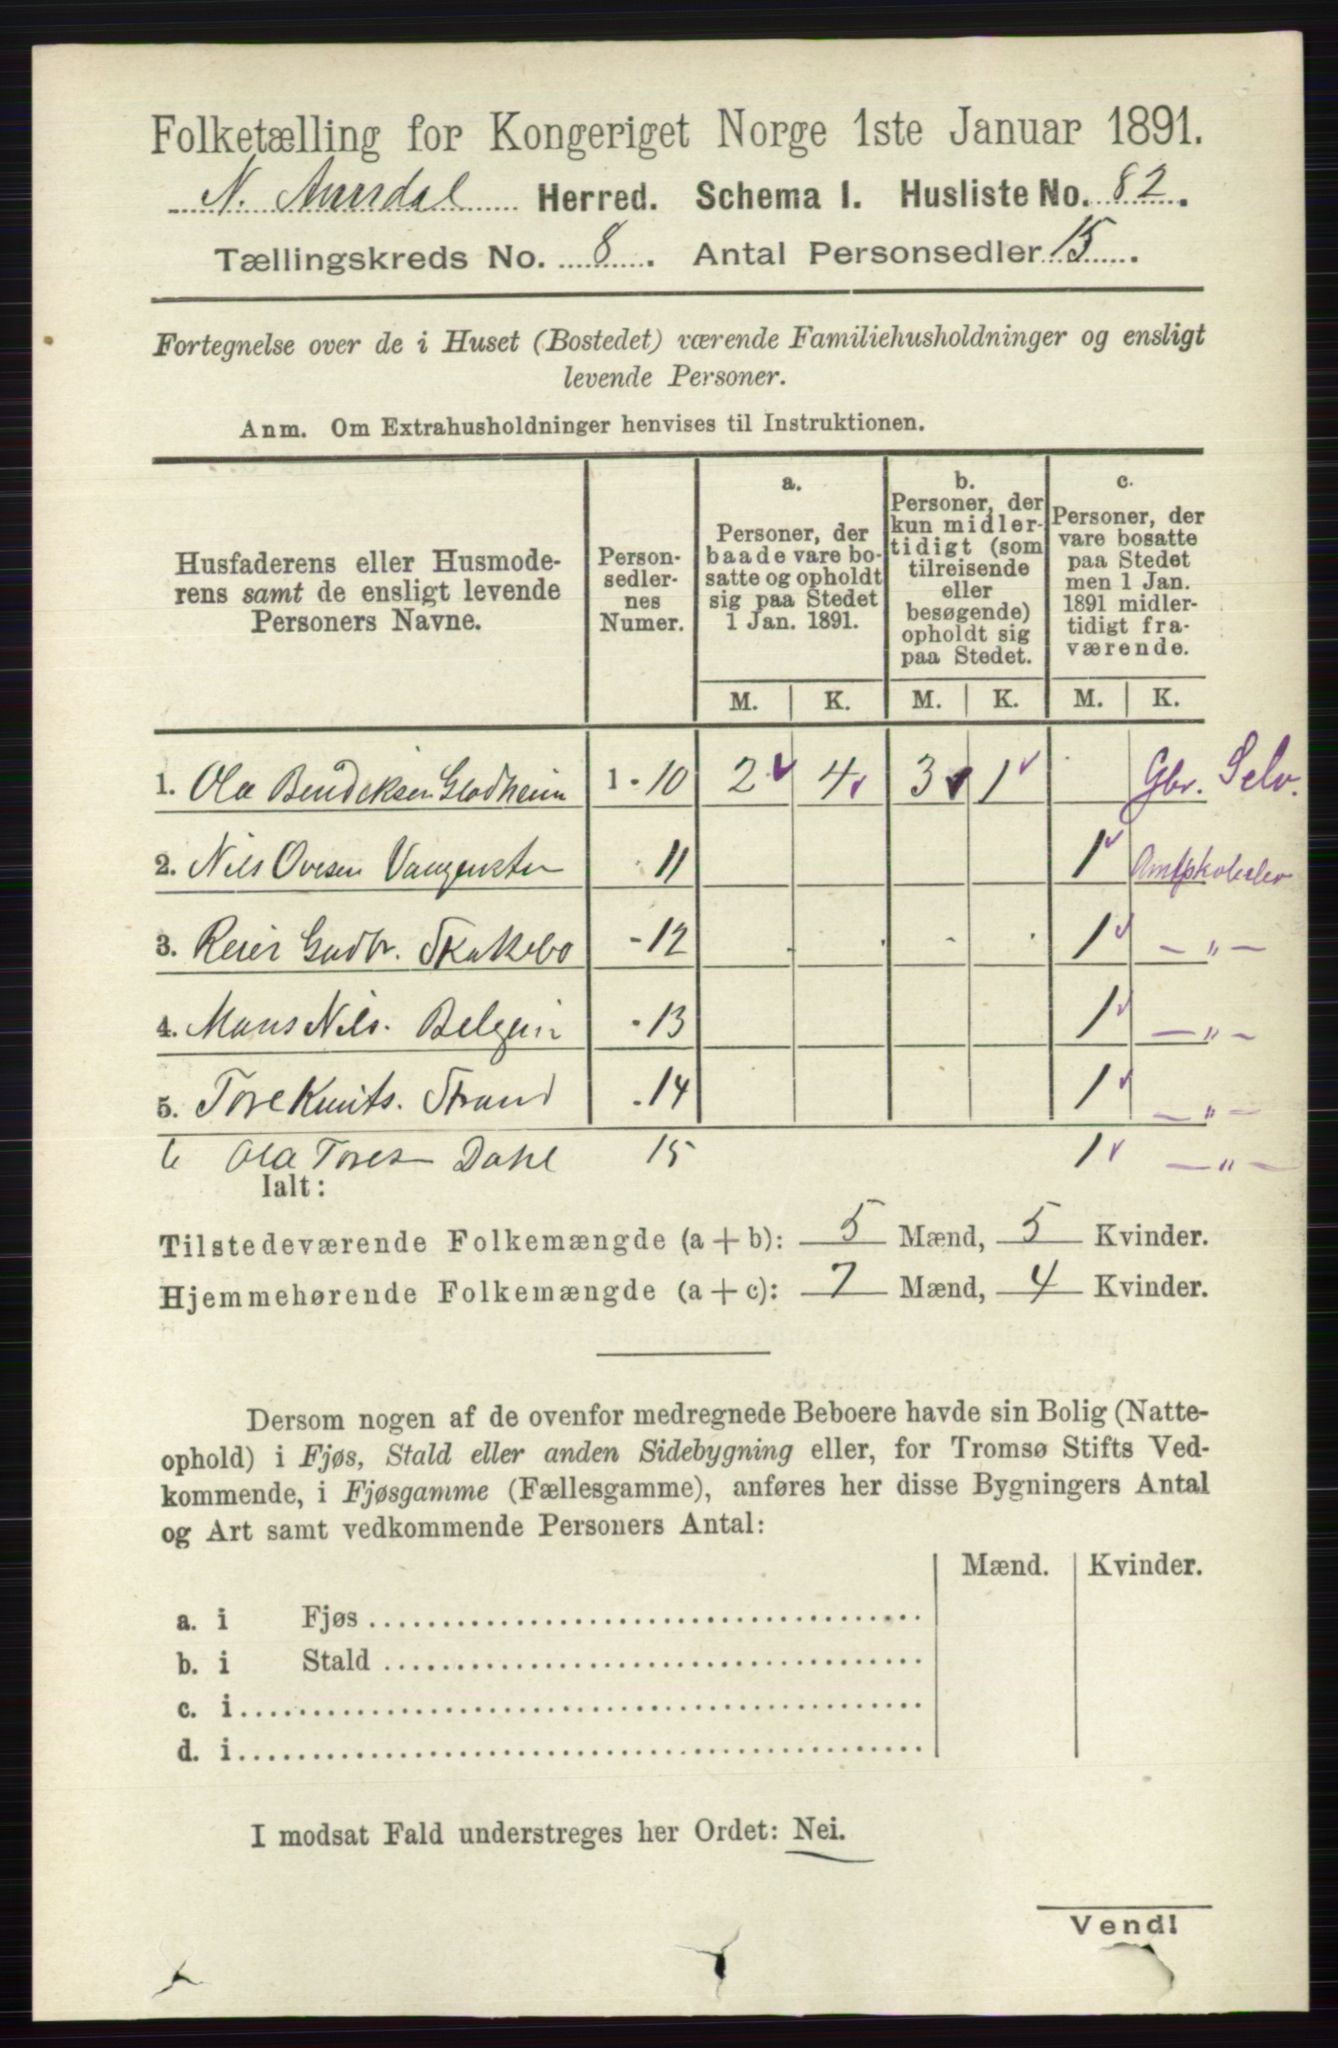 Folketælling for Kongeriget Norge 1ste Januar 1891.
N. Aurdal Herred. Schema I. Husliste No. 82.
Tællingskreds No. 8. Antal Personsedler 15.
Fortegnelse over de i Huset (Bostedet) værende Familiehusholdninger og ensligt
levende Personer.
Anm. Om Extrahusholdninger henvises til Instruktionen.
Husfaderens eller Husmode-
rens samt de ensligt levende
Personers Navne.
Person-
sedler-
nes
Numer.
a.
Personer, der
baade vare bo-
satte og opholdt
sig paa Stedet
1 Jan. 1891.
b.
Personer, der
kun midler-
tidigt (som
tilreisende
eller
besøgende)
opholdt sig
paa Stedet.
c.
Personer, der
vare bosatte
paa Stedet
men 1 Jan.
1891 midler-
tidigt fra-
værende.
M. K. M. K. M. K.
1. Ola Bendeksen Glodheim 1 - 10 2 4 3 1 Gbr. Selv.
2. Nils Ovesen 11 1
3. Reier Gudbr. Skakebo - 12 1 — „ —
4. Mons Nils. - 13 1 — „ —
5. Tore Knuts. Strand - 14 1 — „ —
6 Ola Tores Dahl 15 1 — „ —
Ialt:
Tilstedeværende Folkemængde (a + b): 5 Mænd, 5 Kvinder.
Hjemmehørende Folkemængde (a + c): 7 Mænd, 4 Kvinder.
Dersom nogen af de ovenfor medregnede Beboere havde sin Bolig (Natte-
ophold) i Fjøs, Stald eller anden Sidebygning eller, for Tromsø Stifts Ved-
kommende, i Fjøsgamme (Fællesgamme), anføres her disse Bygningers Antal
og Art samt vedkommende Personers Antal:
Mænd. Kvinder.
a. i Fjøs
b. i Stald
c. i
d. i
I modsat Fald understreges her Ordet: Nei.
Vend!